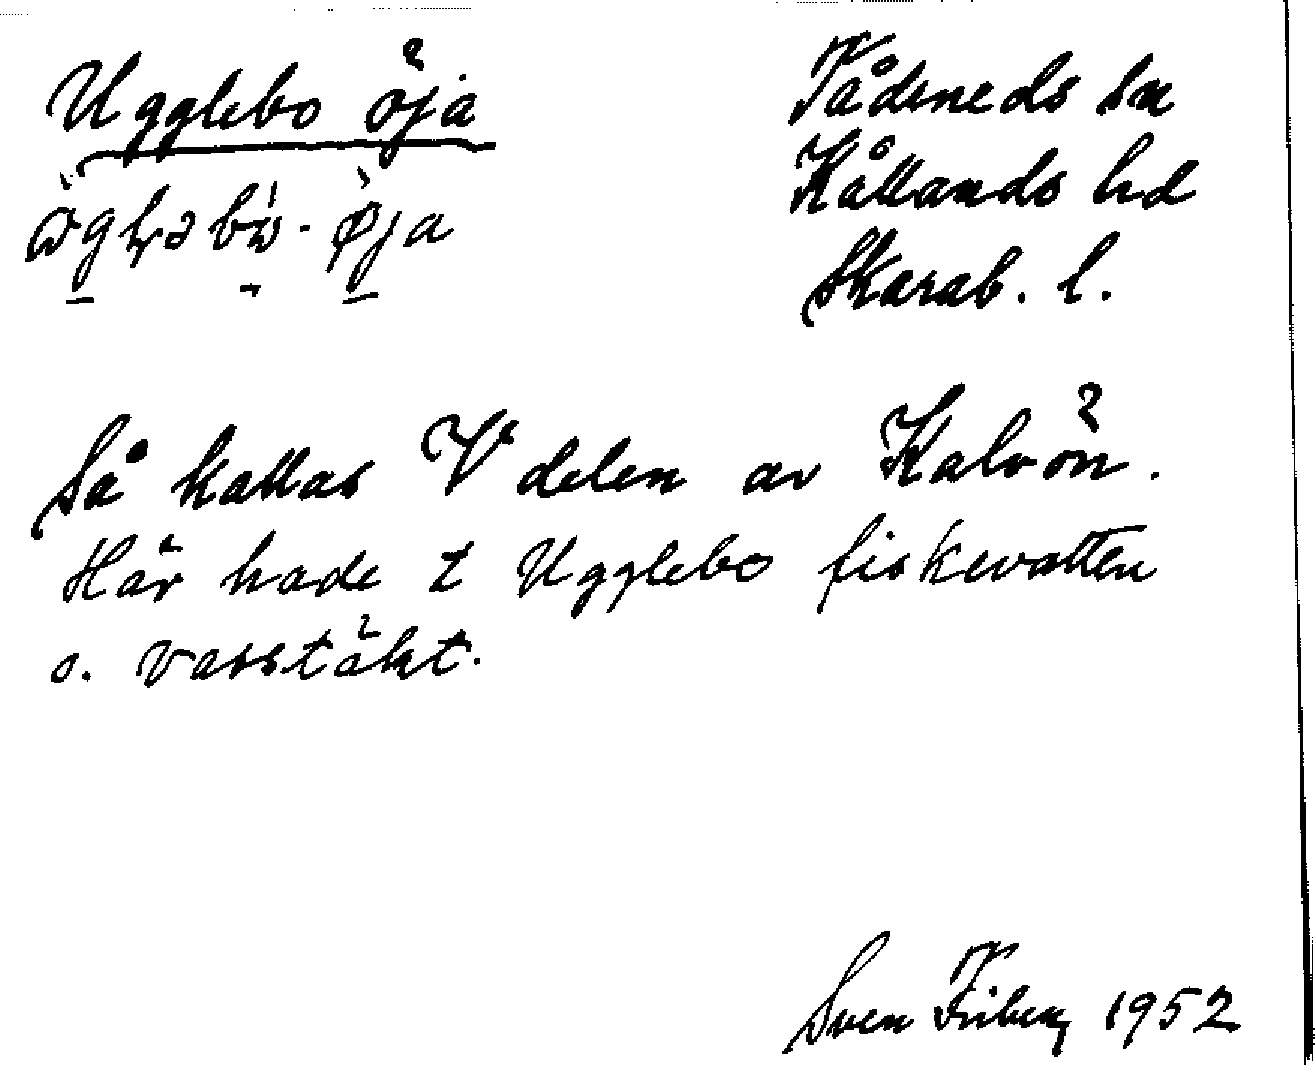 Ugglebo öja
Fådeneds sn
Kållands hd
Skarab. l.
Så kallas V delen av Kalvön.
Här hade t Ugglebo fiskevatten
o. vasstäkt.
Sven Friberg 1952